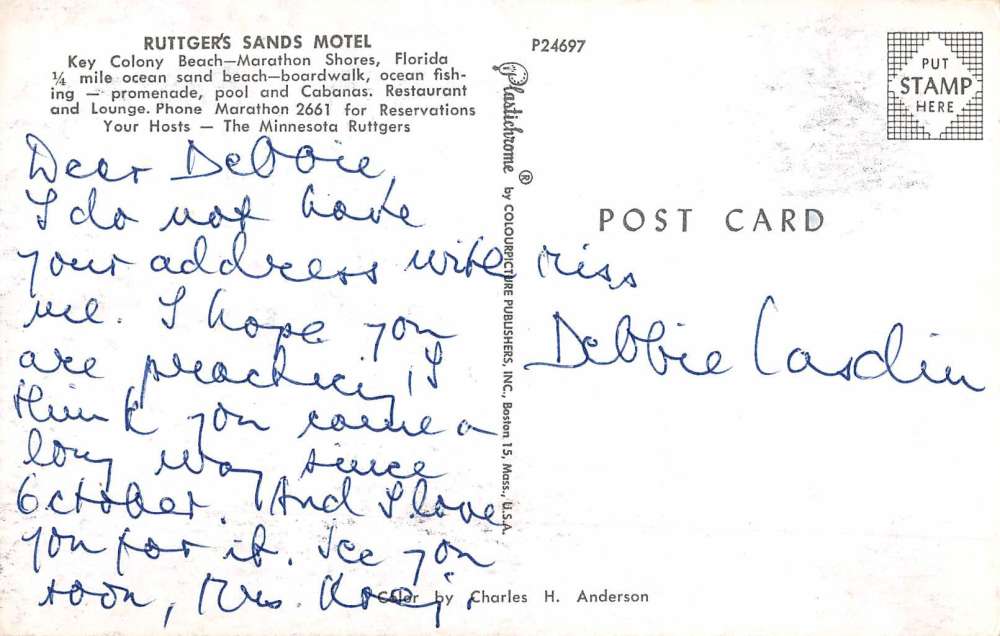 RUTTGER'S SANDS MOTEL
Key Colony Beach—Marathon Shores, Florida
¼ mile ocean sand beach—boardwalk, ocean fish-
ing — promenade, pool and Cabanas. Restaurant
and Lounge. Phone Marathon 2661 for Reservations
Your Hosts — The Minnesota Ruttgers
Dear Debbie,
I do not have
your address with
me. I hope you
are practicing, I
think you came a
long way since
October. And I love
you for it. See you
soon, Mrs.
Color by Charles H. Anderson
P24697
Plastichrome ® by COLOURPICTURE PUBLISHERS, INC., Boston 15, Mass., U.S.A.
PUT
STAMP
HERE
POST CARD
Miss
Debbie